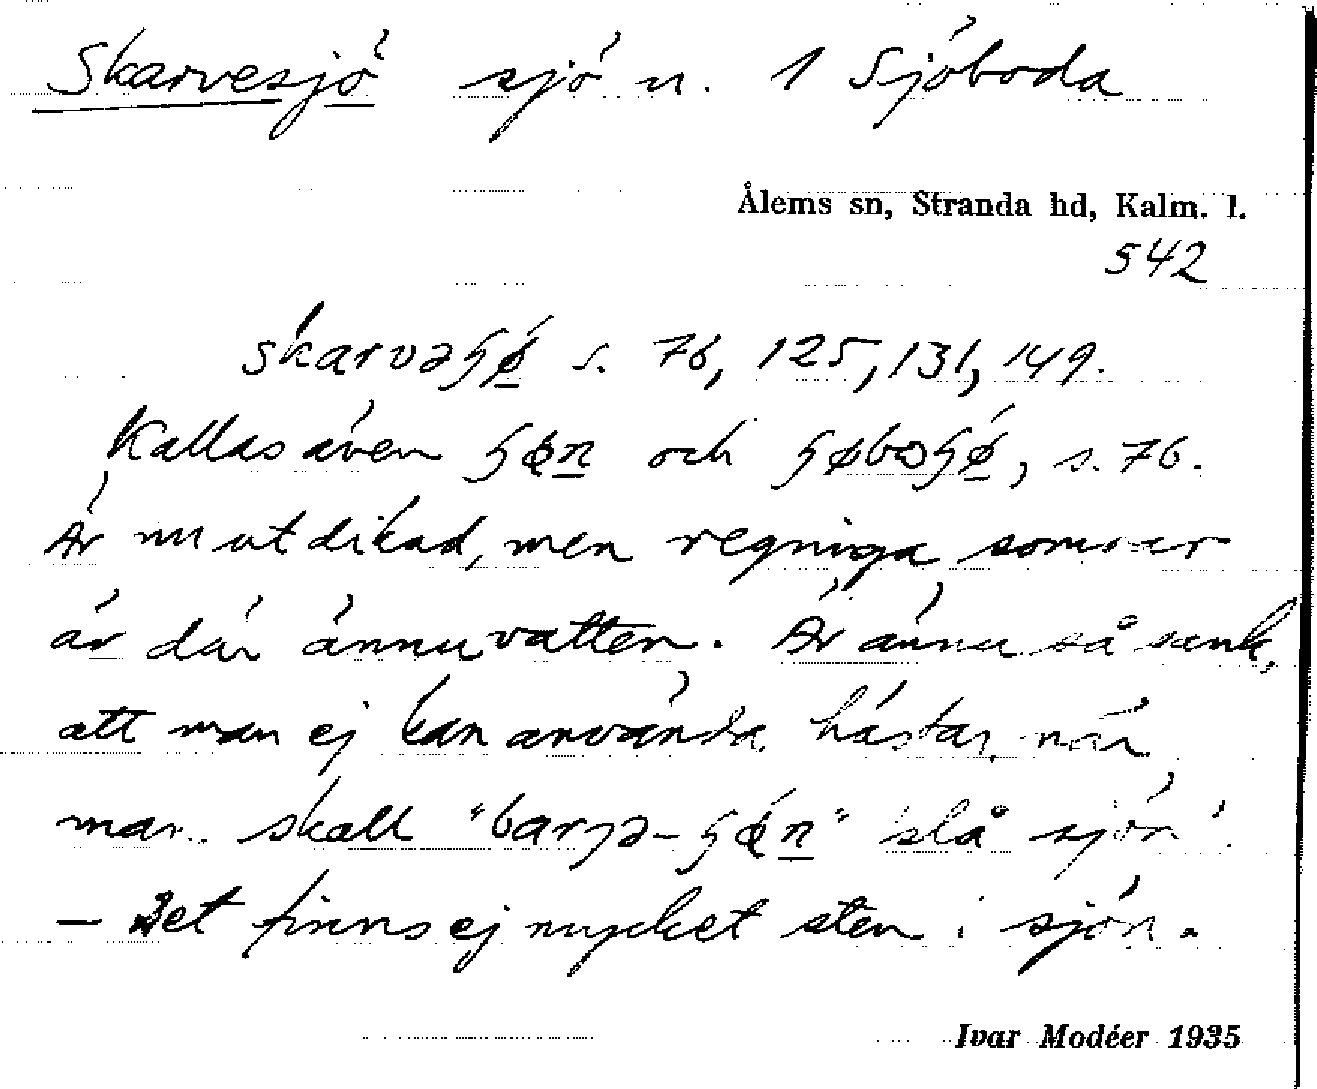 Skarvesjö sjö n. 1 Sjöboda
Ålems sn, Stranda hd, Kalm. l.
542
skarvəɧø̱ s. 76, 125, 131, 149.
Kallas även ɧøn̲ och ɧøboɧø̱, s. 76.
Är nu utdikad, men regniga somrar
är där ännu vatten. Är ännu så sank,
att man ej kan använda hästar, när
man skall "barɟə-ɧøn̲" 'slå sjön'.
– Det finns ej mycket sten i sjön.
Ivar Modéer 1935